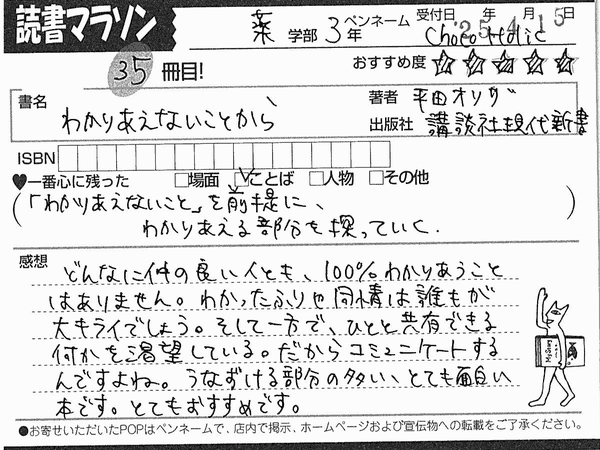 読書マラソン
薬 学部 3年 ペンネーム 受付日 '25年 月15日
Choco Holic
35 冊目!
おすすめ度 ☆☆☆☆☆
書名 わかりあえないことから
著者 平田オリザ
出版社 講談社現代新書
ISBN
♥一番心に残った □場面 ☑ことば □人物 □その他
(「わかりあえないこと」を前提に、
わかりあえる部分を探っていく.)
感想
どんなに仲の良い人とも、100%わかりあうこと
はありません。わかったふりや同情は誰もが
大キライでしょう。そして一方で、ひとと共有できる
何かを渇望している。だからコミュニケートする
んですよね。うなずける部分の多い、とても面白い
本です。とてもおすすめです。
●お寄せいただいたPOPはペンネームで、店内で掲示、ホームページおよび宣伝物への転載をご了承ください。